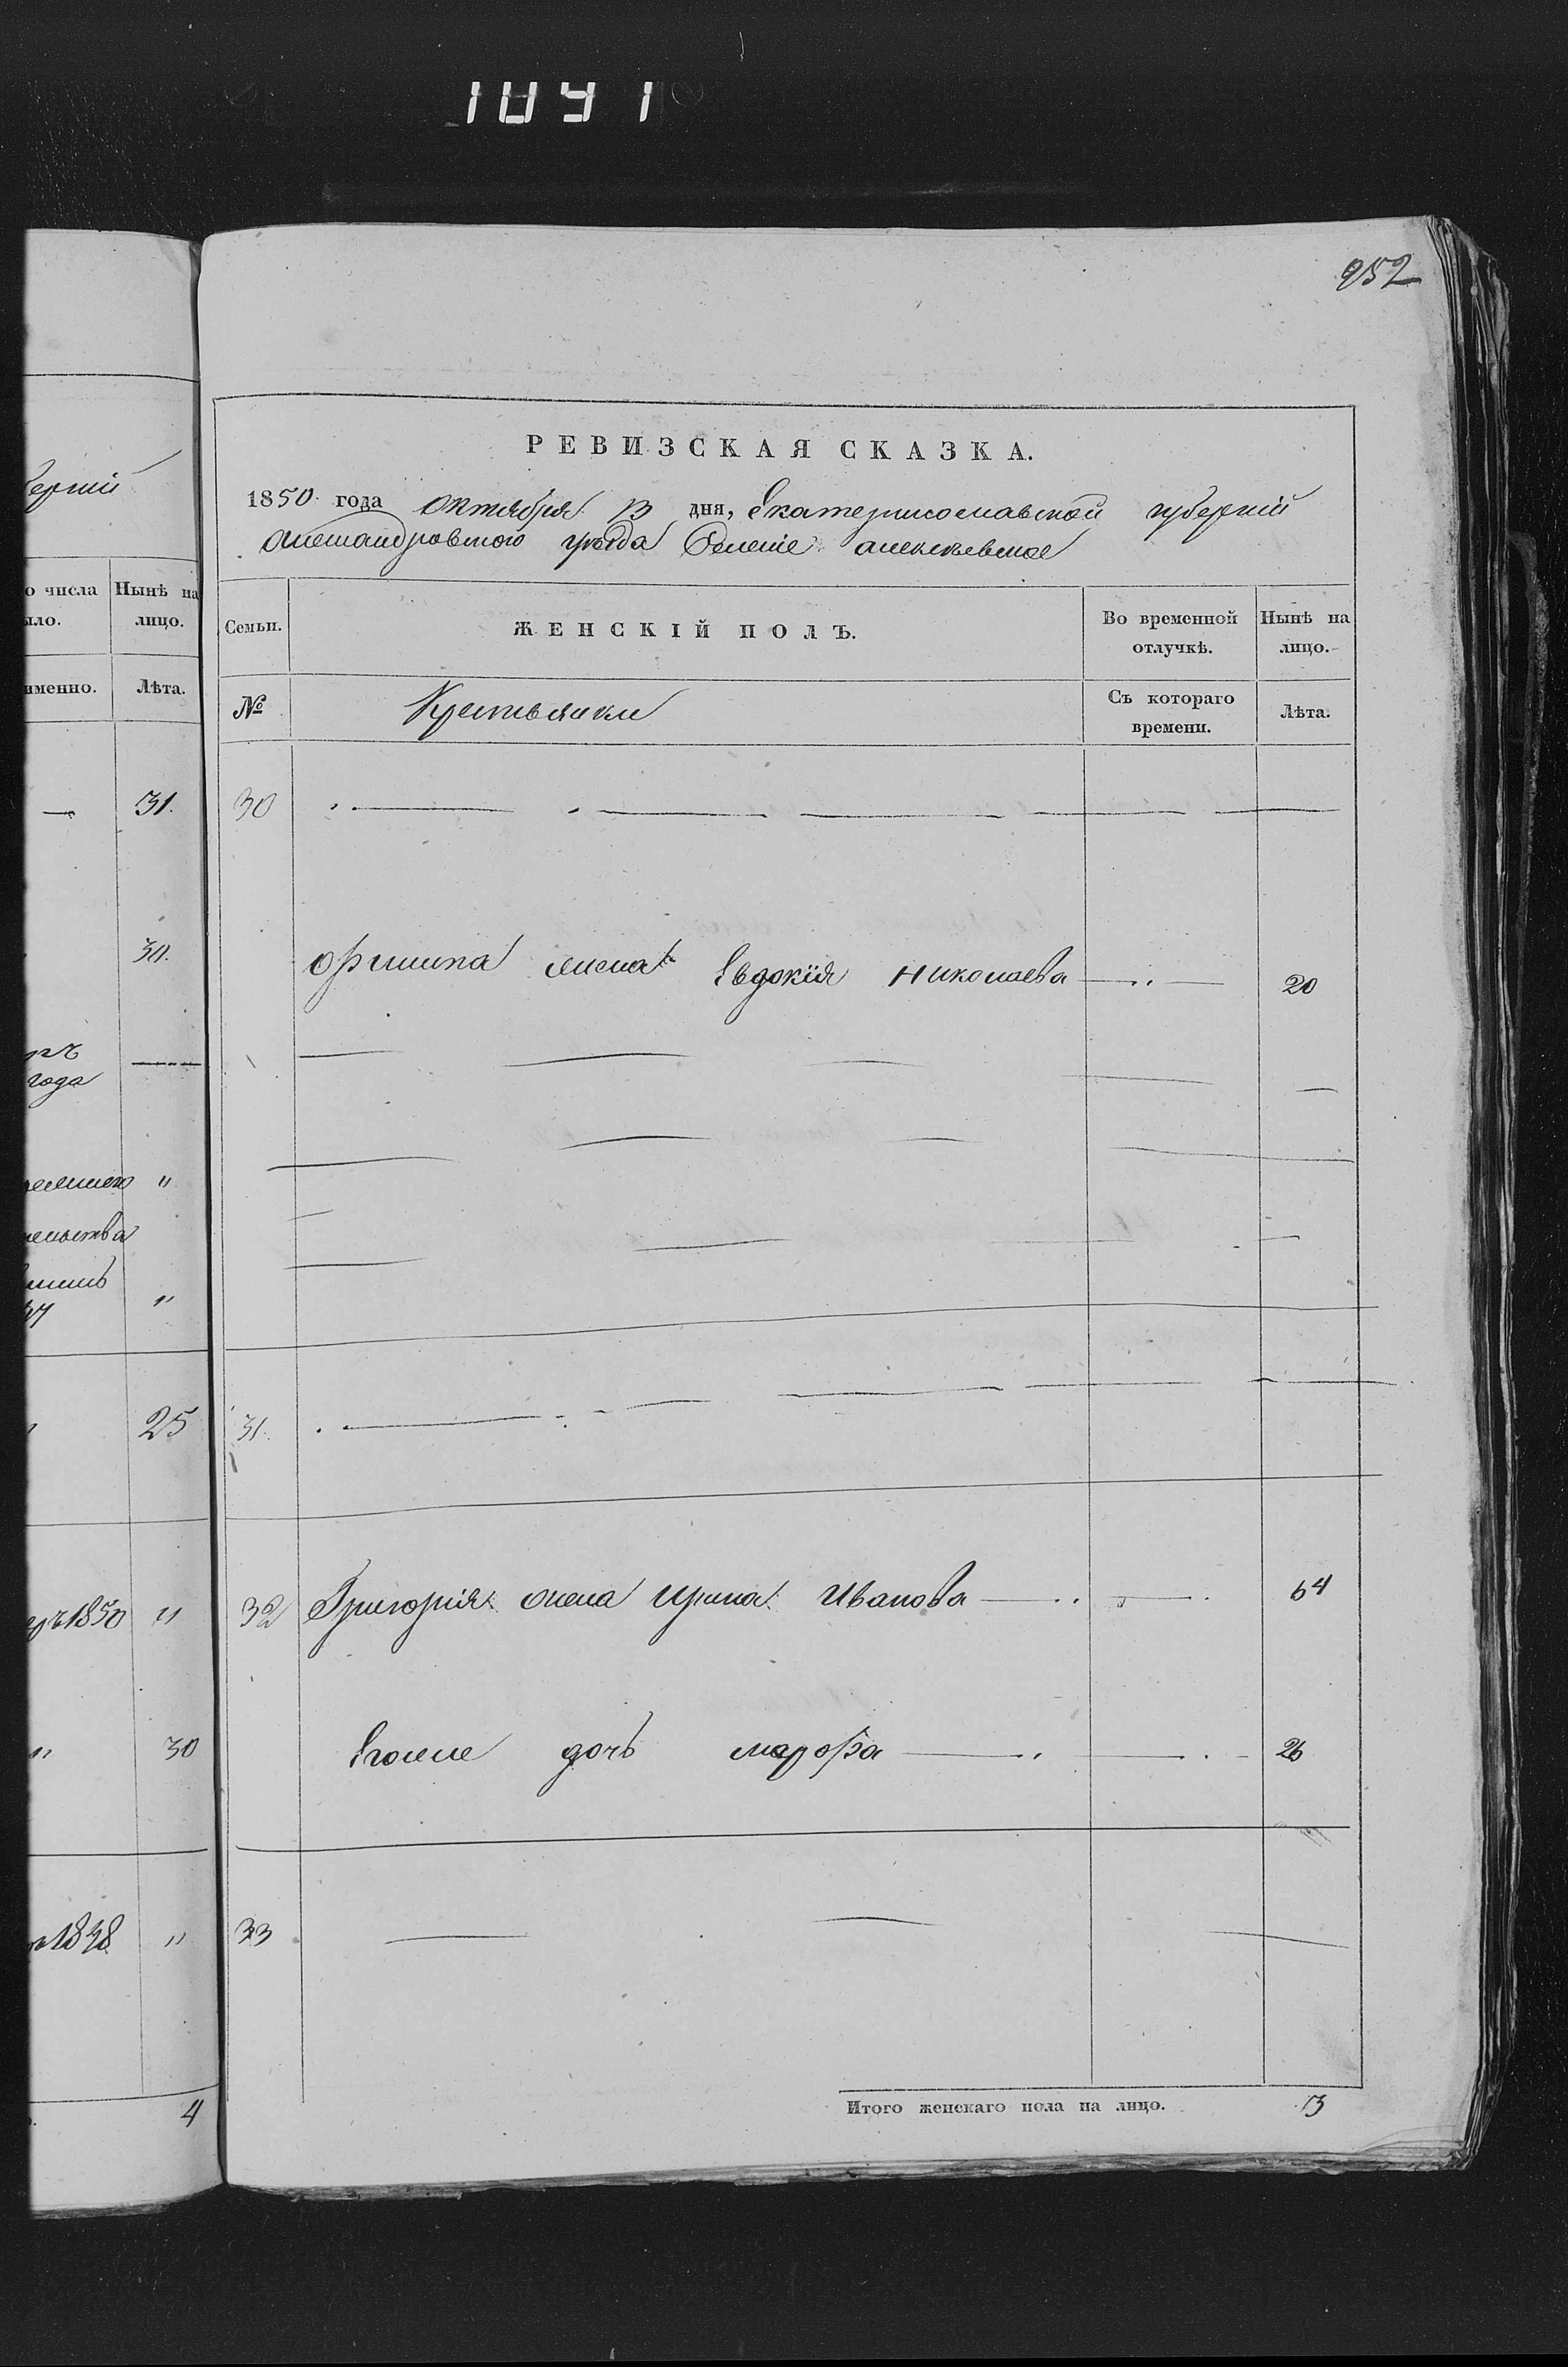 1091
952
РЕВИЗСКАЯ СКАЗКА.
1850 года октября 13 дня, Екатеринославской губерніи
Александровского уѣзда Селеніе алексѣевское
Семьи. ЖЕНСКІЙ ПОЛЪ. Во временной отлучкѣ. Нынѣ на лицо.
№ Крестьянки Съ котораго времени. Лѣта.
30
жена Евдокія Николаева 20
31.
32 Григорія жена Ирина Иванова 64
Егоже дочь марфа 26
33
Итого женскаго пола на лицо. 3
о числа Нынѣ на
ыло. лицо.
именно. Лѣта.
31.
30.
года
25
1850 "
" 30
1838 "
4